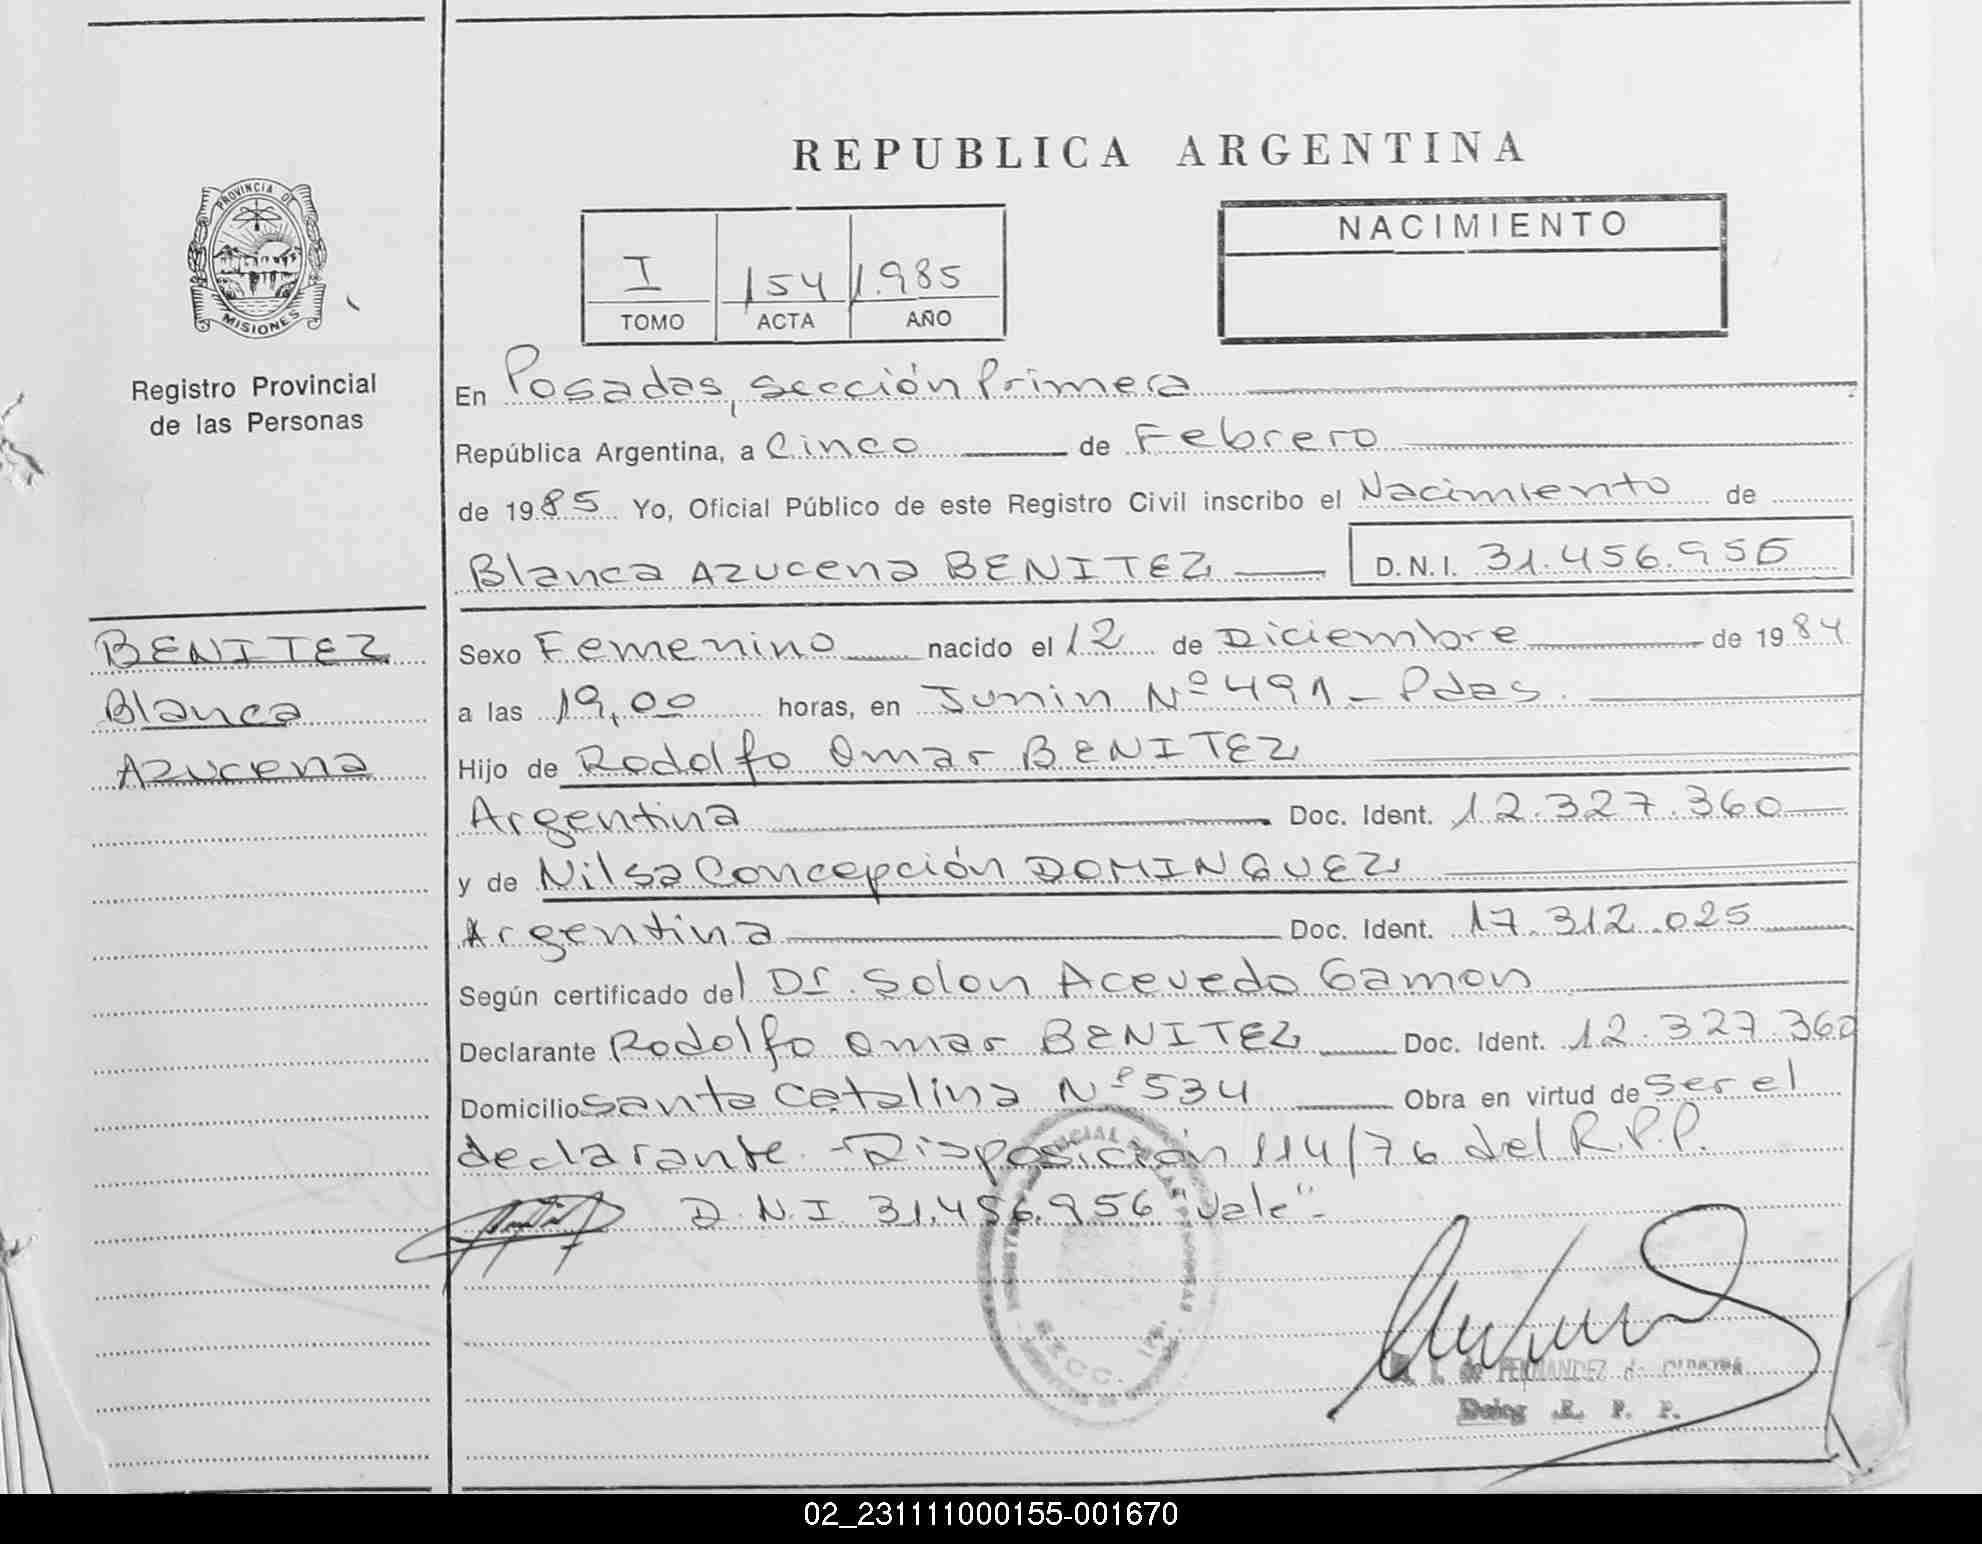 REPUBLICA ARGENTINA
PROVINCIA DE
MISIONES
Registro Provincial
de las Personas
NACIMIENTO
I 154 1.985
TOMO ACTA AÑO
En Posadas, sección Primera
República Argentina, a Cinco de Febrero
de 1985 Yo, Oficial Público de este Registro Civil inscribo el Nacimiento de
Blanca Azucena BENITEZ D.N.I. 31.456.956
BENITEZ
Blanca
Azucena
Sexo Femenino nacido el 12 de Diciembre de 1984
a las 19,00 horas, en Junin Nº 491 - Pdas.
Hijo de Rodolfo Omar BENITEZ
Argentina Doc. Ident. 12.327.360
y de Nilsa Concepción DOMINGUEZ
Argentina Doc. Ident. 17.312.025
Según certificado del Dr. Solon Acevedo Gamon
Declarante Rodolfo Omar BENITEZ Doc. Ident. 12.327.360
Domicilio Santa Catalina Nº 534 Obra en virtud de ser el
declarante. - Disposición 114/76 del R.P.P.
D.N.I. 31.456.956 "Vale" -
FERNANDEZ de
Deleg R. P. P.
02_231111000155-001670